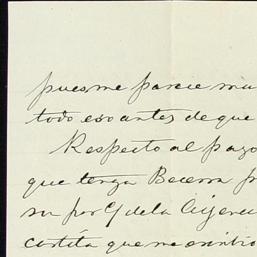 pues me parece mu
todo eso antes de que
Respecto al pago
que tenga Becerra
su por C/ de la Agenci
cartita que me escribió